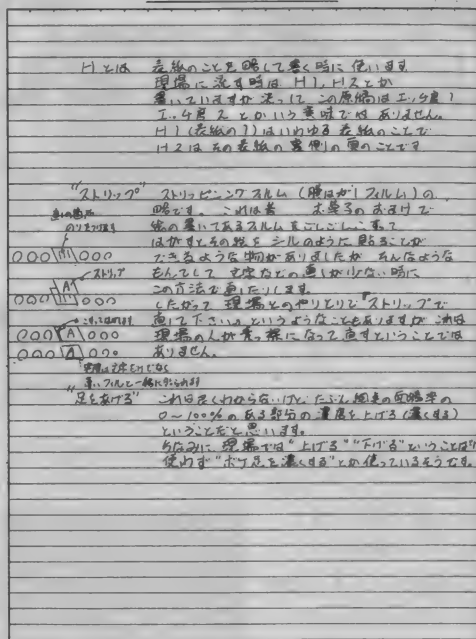 Hとは 表紙のことを略して書く時に使います
現場に流す時は H1, H2とか
書いていますが 決して この原稿はエッチ度1
エッチ度2 とかいう意味ではありません。
H1(表紙の1)はいわゆる表紙のことで
H2は その表紙の裏側の頁のことです
"ストリップ" ストリッピングフィルム(膜はがしフィルム)の
略です。これは昔 お菓子のおまけで
絵の書いてあるフィルムをごしごしこすって
はがすとその絵をシールのように貼ることが
できるような物がありましたが そんなような
もんでして 文字などの直しが少ない時に
この方法で直したりします。
したがって 現場とのやりとりで"ストリップで
直して下さい"というようなこともありますが これは
現場の人が素っ裸になって直すということでは
ありません。
のりをつけます
000 000
ストリップ
A
000 000
000 A 000
000 A 000
実際は文字だけでなく
黒いフィルムと一緒に
"足をあげる" これは良くわからないけど たぶん
0~100%のある部分の濃度を上げる(濃くする)
ということだと思います。
ちなみに 現場では"上げる""下げる"ということばは
使わず"ボケ足を濃くする"とか使っているそうです。